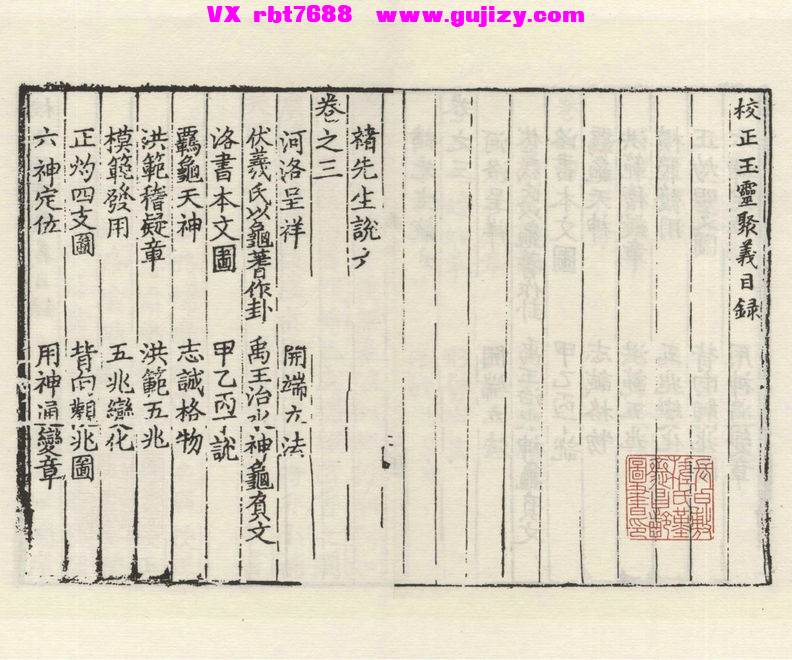 VX rbt7688 www.gujizy.com
校正玉靈聚義目録
褚先生說
卷之三
河洛呈祥 開端大法
伏羲氏以龜蓍作卦 禹王治水神龜負文
洛書本文圖 甲乙丙丁說
龜天神 志誠格物
洪範稽疑章 洪範五兆
模範發用 五兆變化
正灼四支圖 背向類兆圖
六神定位 用神通變章